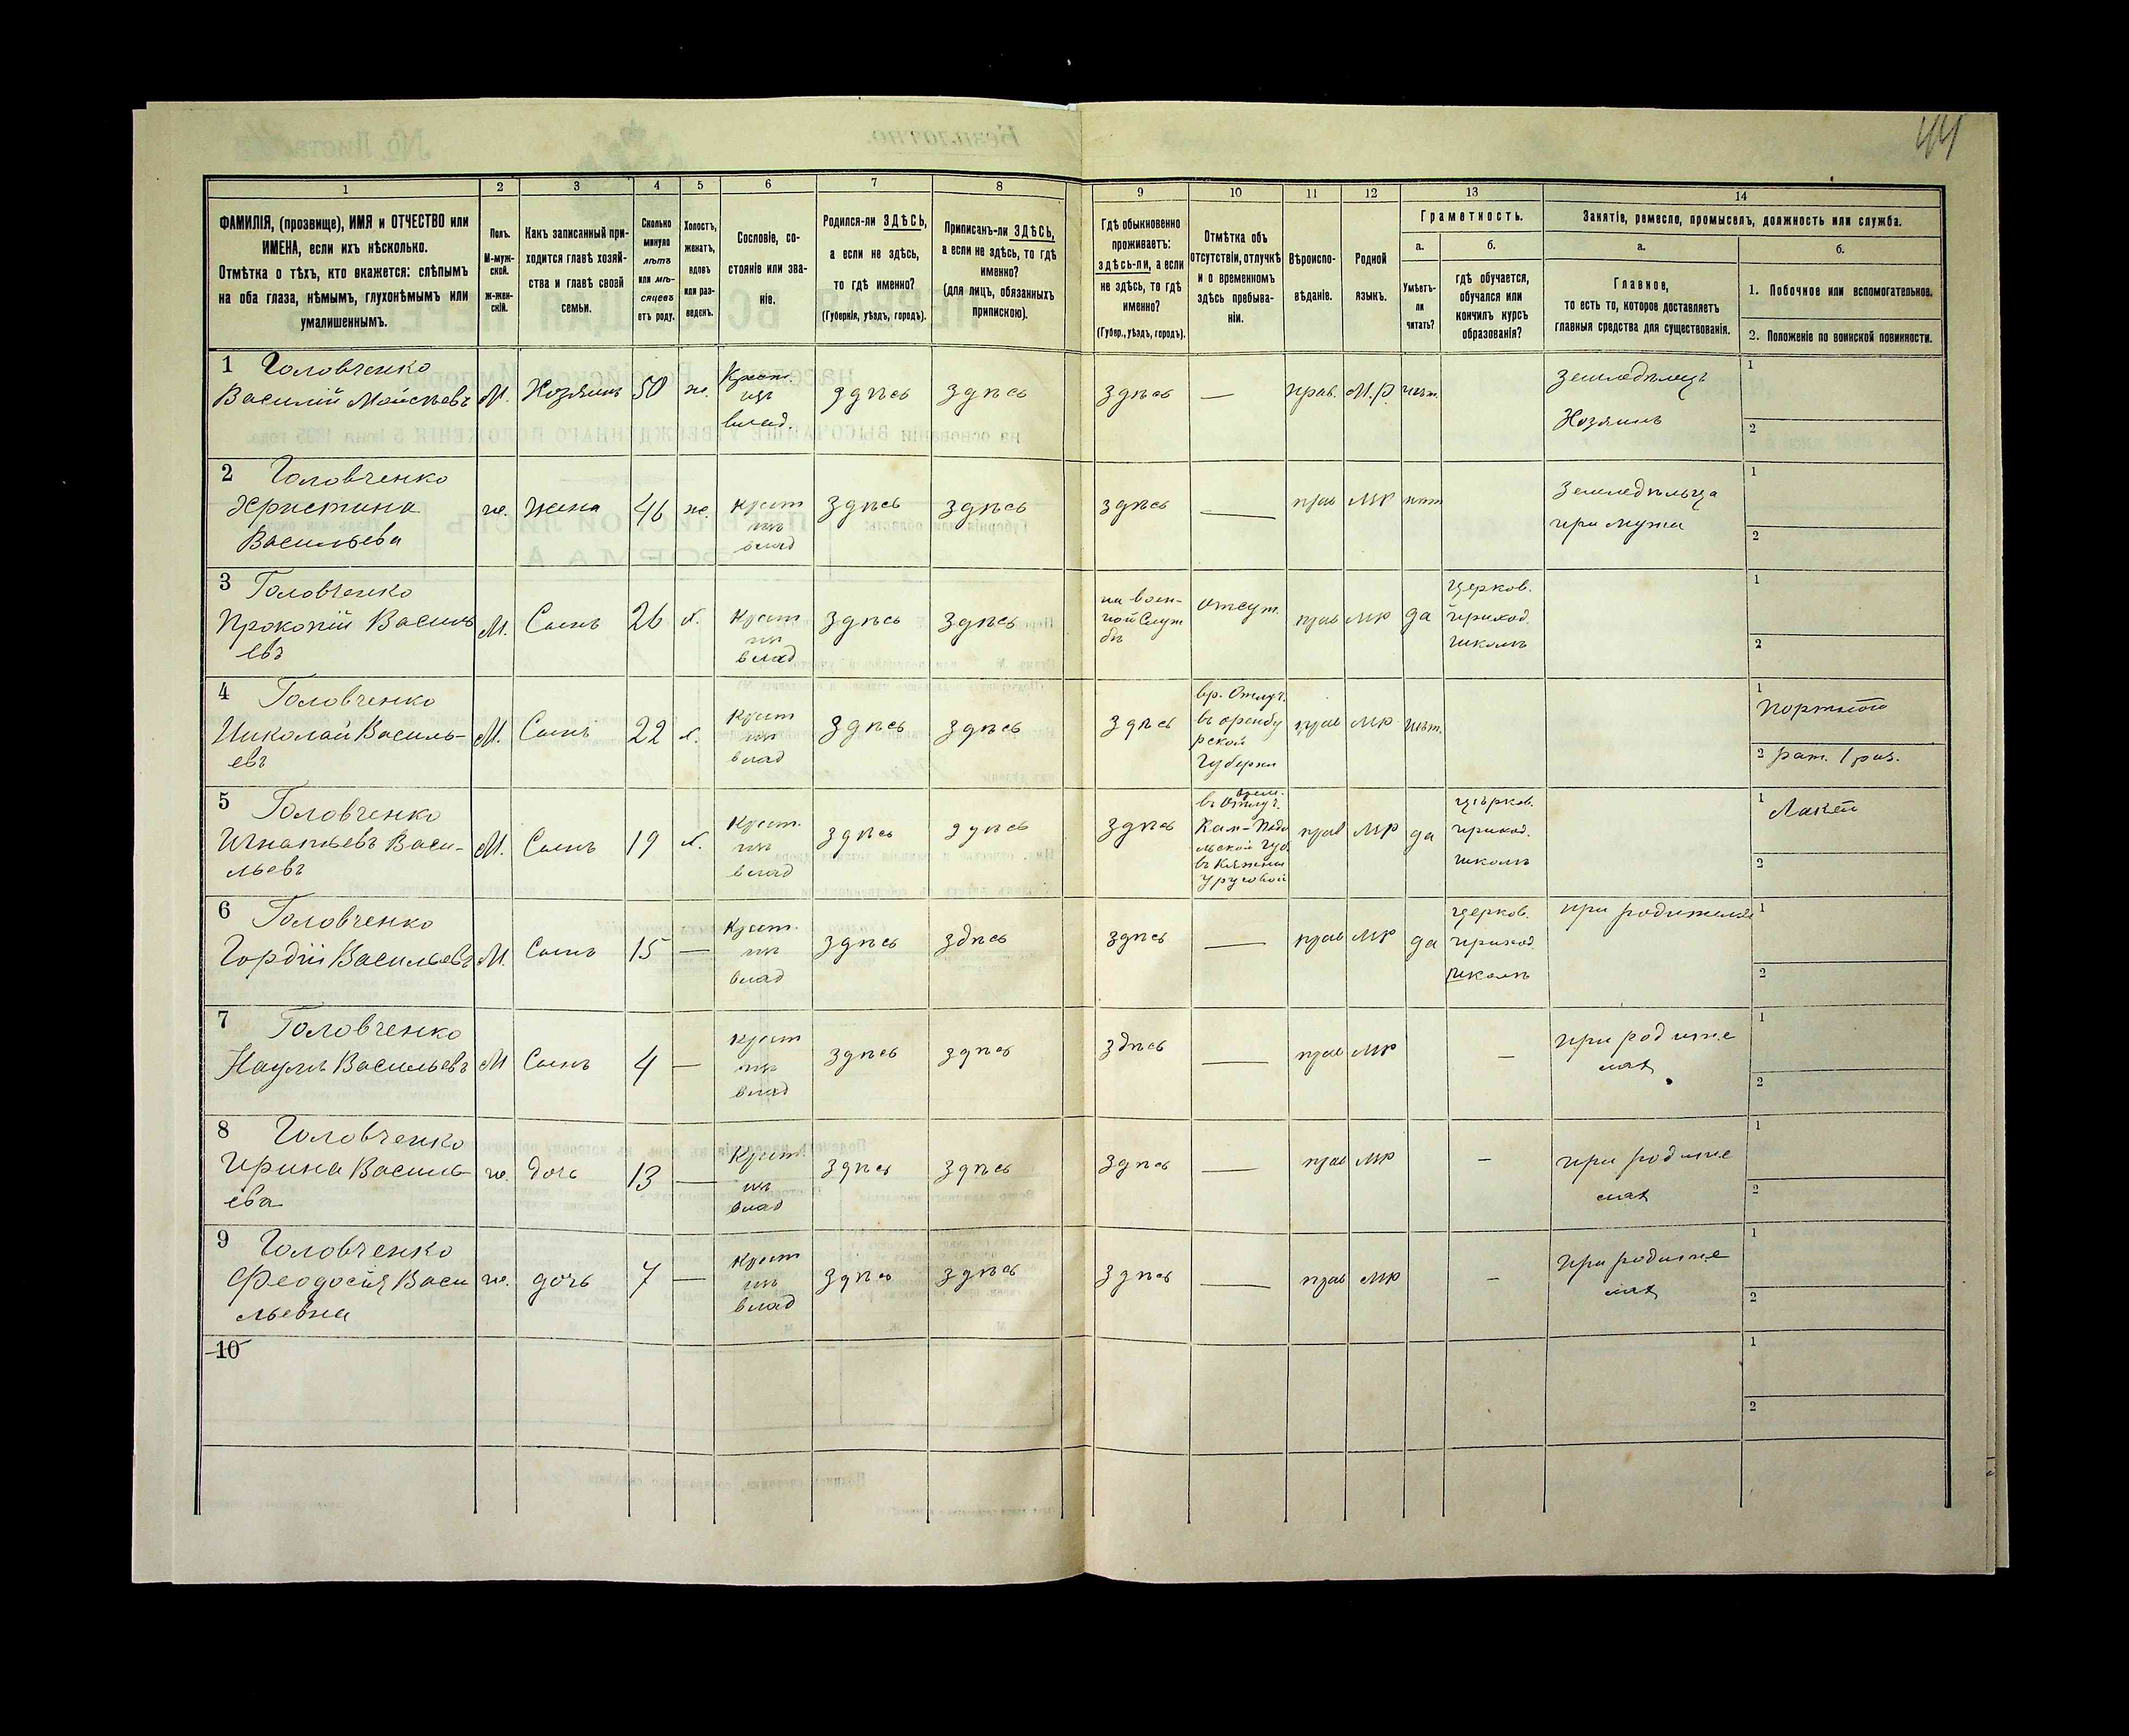 44
1 2 3 4 5 6 7 8 9 10 11 12 13 14
ФАМИЛІЯ, (прозвище), ИМЯ и ОТЧЕСТВО или
ИМЕНА, если ихъ нѣсколько.
Отмѣтка о тѣхъ, кто окажется: слѣпымъ
на оба глаза, нѣмымъ, глухонѣмымъ или
умалишеннымъ.
Полъ.
М-муж-
ской.
ж-жен-
скій.
Какъ записанный при-
ходится главѣ хозяй-
ства и главѣ своей
семьи.
Сколько
минуло
лѣтъ
или мѣ-
сяцевъ
отъ роду.
Холостъ,
женатъ,
вдовъ
или раз-
веденъ.
Сословіе, со-
стояніе или зва-
ніе.
Родился-ли ЗДѢСЬ,
а если не здѣсь,
то гдѣ именно?
(Губернія, уѣздъ, городъ).
Приписанъ-ли ЗДѢСЬ,
а если не здѣсь, то гдѣ
именно?
(для лицъ, обязанныхъ
припискою).
Гдѣ обыкновенно
проживаетъ:
здѣсь-ли, а если
не здѣсь, то гдѣ
именно?
(Губер., уѣздъ, городъ).
Отмѣтка объ
отсутствіи, отлучкѣ
и о временномъ
здѣсь пребыва-
ніи.
Вѣроиспо-
вѣданіе.
Родной
языкъ.
Грамотность.
а.
Умѣетъ-
ли
читать?
б.
гдѣ обучается,
обучался или
кончилъ курсъ
образованія?
Занятіе, ремесло, промыселъ, должность или служба.
а.
Главное,
то есть то, которое доставляетъ
главныя средства для существованія.
б.
1. Побочное или вспомогательное.
2. Положеніе по воинской повинности.
1 Головченко
Василій Моисѣевъ М. Хозяинъ 50 ж. Крест. изъ влад. здѣсь здѣсь здѣсь — прав. М.Р. нѣт. Земледѣлецъ
Хозяинъ
1
2
2 Головченко
Христина
Васильева
же. жена 46 же. крест изъ влад здѣсь здѣсь здѣсь — прав МР нѣт Земледѣльца
при мужи
1
2
3 Головченко
Прокопій Василь
евъ
М. Сынъ 26 х. Крест изъ влад здѣсь здѣсь
на воен-
ной Служ
бѣ
отсут. прав МР да
церков.
приход.
школѣ
1
2
4 Головченко
Николай Василь-
евъ
М. Сынъ 22 х. Крест изъ влад здѣсь здѣсь здѣсь
вр. Отлуч.
въ оренбу
рской
Губерни
прав МР нѣт.
1 Портной
2 рат. 1 раз.
5 Головченко
Игнатьевъ Васи-
льевъ
М. Сынъ 19 х. Крест. изъ влад здѣсь здѣсь здѣсь
врем.
въ отлуч.
Кам-Подо
льской Губ.
въ Княгини
Урусовой
прав МР да
церков.
приход.
школѣ
1 Лакей
2
6 Головченко
Гордій Васильевъ М. Сынъ 15 — Крест. изъ влад здѣсь здѣсь здѣсь — прав МР да
церков.
приход.
школѣ
при родителях
1
2
7 Головченко
Наумъ Васильевъ М Сынъ 4 — крест изъ влад здѣсь здѣсь здѣсь — прав МР —
при родите
лях
1
2
8 Головченко
Ирина Василь
ева
же. дочь 13 — Крест. изъ влад здѣсь здѣсь здѣсь — прав МР —
при родите
лях
1
2
9 Головченко
Феодосія Васи
льевна
же. дочь 7 — Крест изъ влад здѣсь здѣсь здѣсь — прав МР —
при родите
лях
1
2
10
1
2